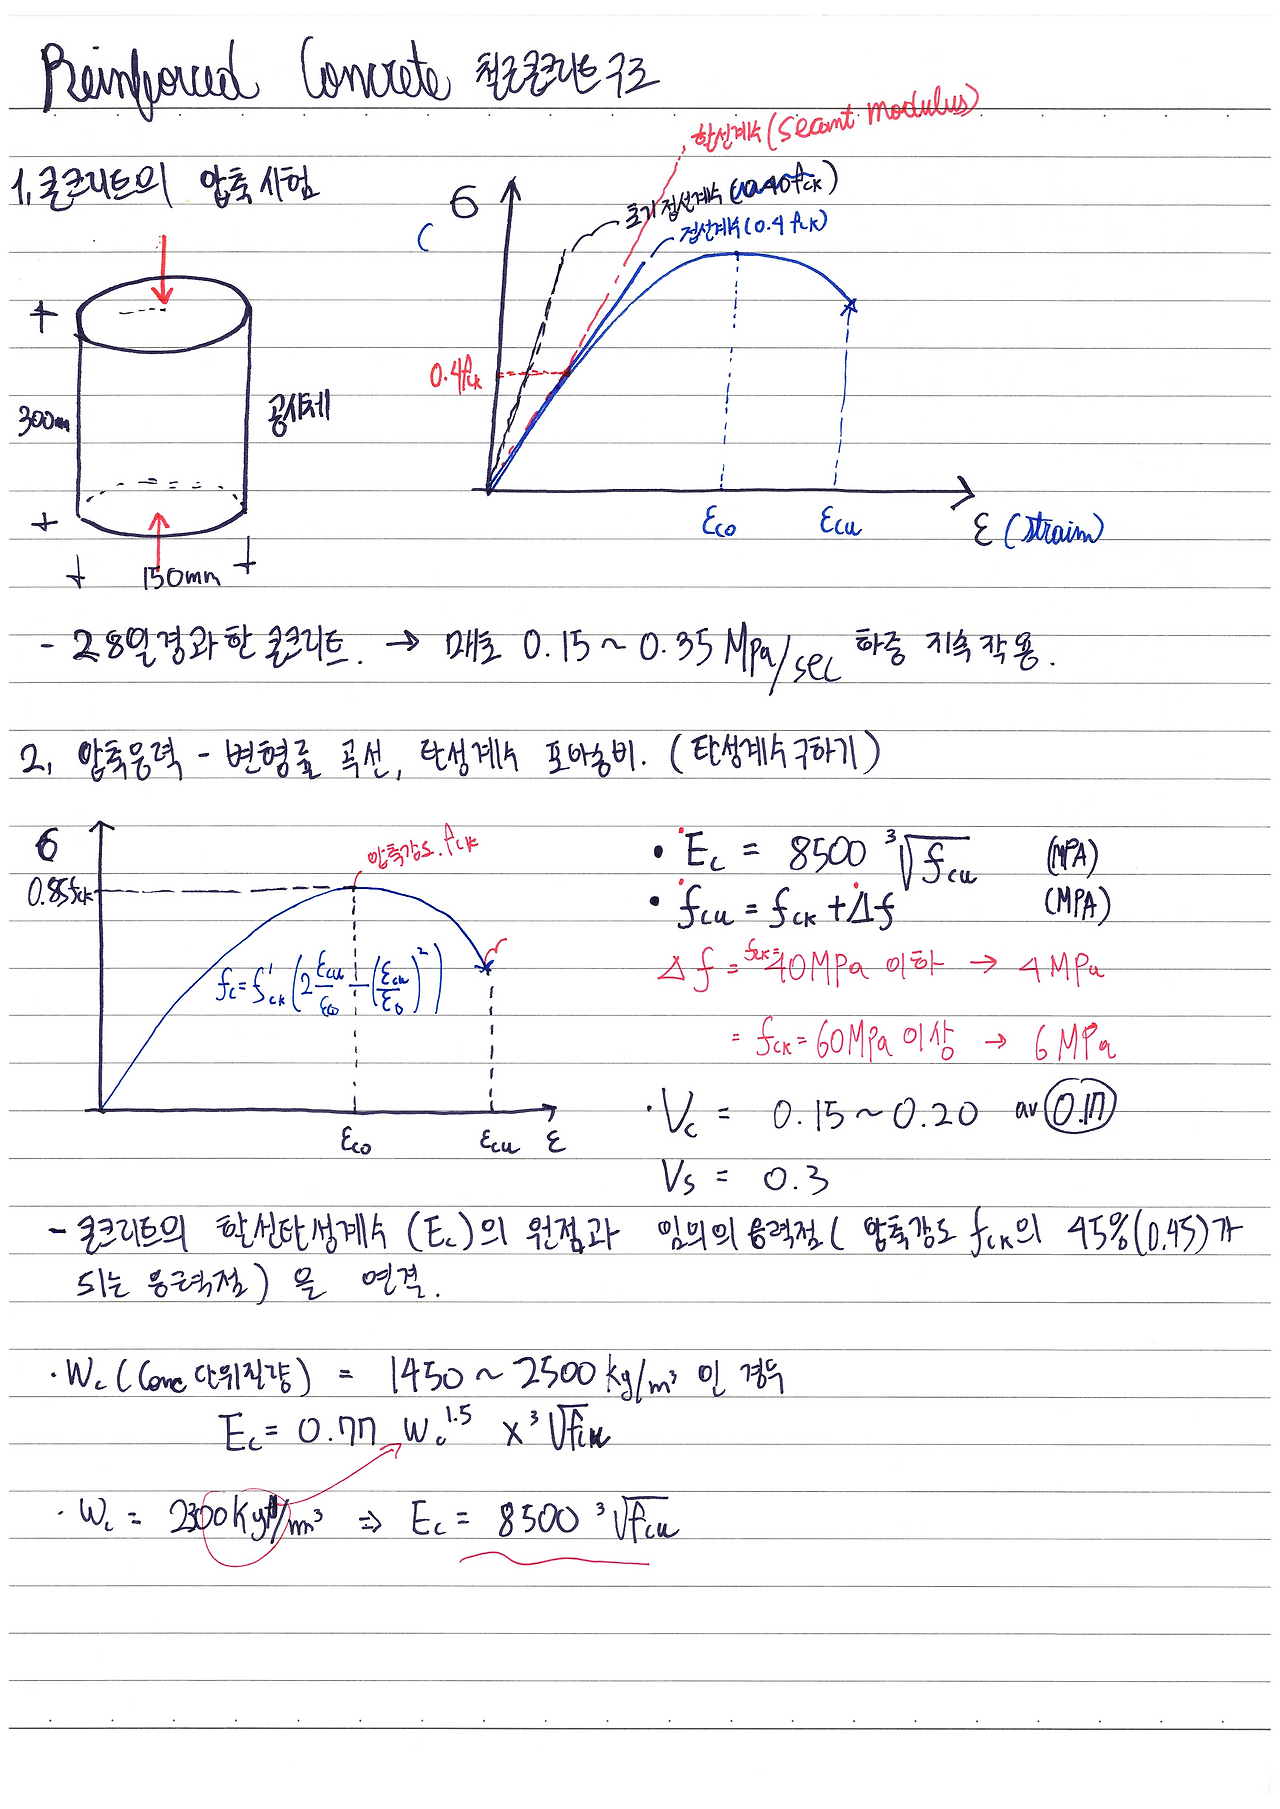 Reinforced Concrete 철근콘크리트구조
1. 콘크리트의 압축시험
할선계수(Secant modulus)
σ
초기접선계수
접선계수(0.4fck)
0.4fck
300m
공시체
150mm
εco
εcu
ε (strain)
- 28일경과한 콘크리트. → 매초 0.15 ~ 0.35 Mpa/sec 하중 지속작용.
2. 압축응력 - 변형률 곡선, 탄성계수 포아송비. (탄성계수구하기)
σ
압축강도.fck
0.85fck
fc = f'ck (2 εcu/εco - (εcu/εo)²)
εco
εcu
ε
• Ec = 8500 ³√fcu (MPA)
• fcu = fck + Δf (MPA)
Δf = fck= 40MPa 이하 → 4MPa
= fck = 60MPa 이상 → 6MPa
· Vc = 0.15 ~ 0.20 av 0.17
Vs = 0.3
- 콘크리트의 할선탄성계수 (Ec)의 원점과 임의의 응력점( 압축강도 fck의 45%(0.45)가
되는 응력점) 을 연결.
· Wc (Conc 단위질량) = 1450 ~ 2500 kg/m³ 인 경우
Ec = 0.77 Wc^1.5 × ³√fcu
· Wc = 2300Kgf/m³ ⇒ Ec = 8500 ³√fcu